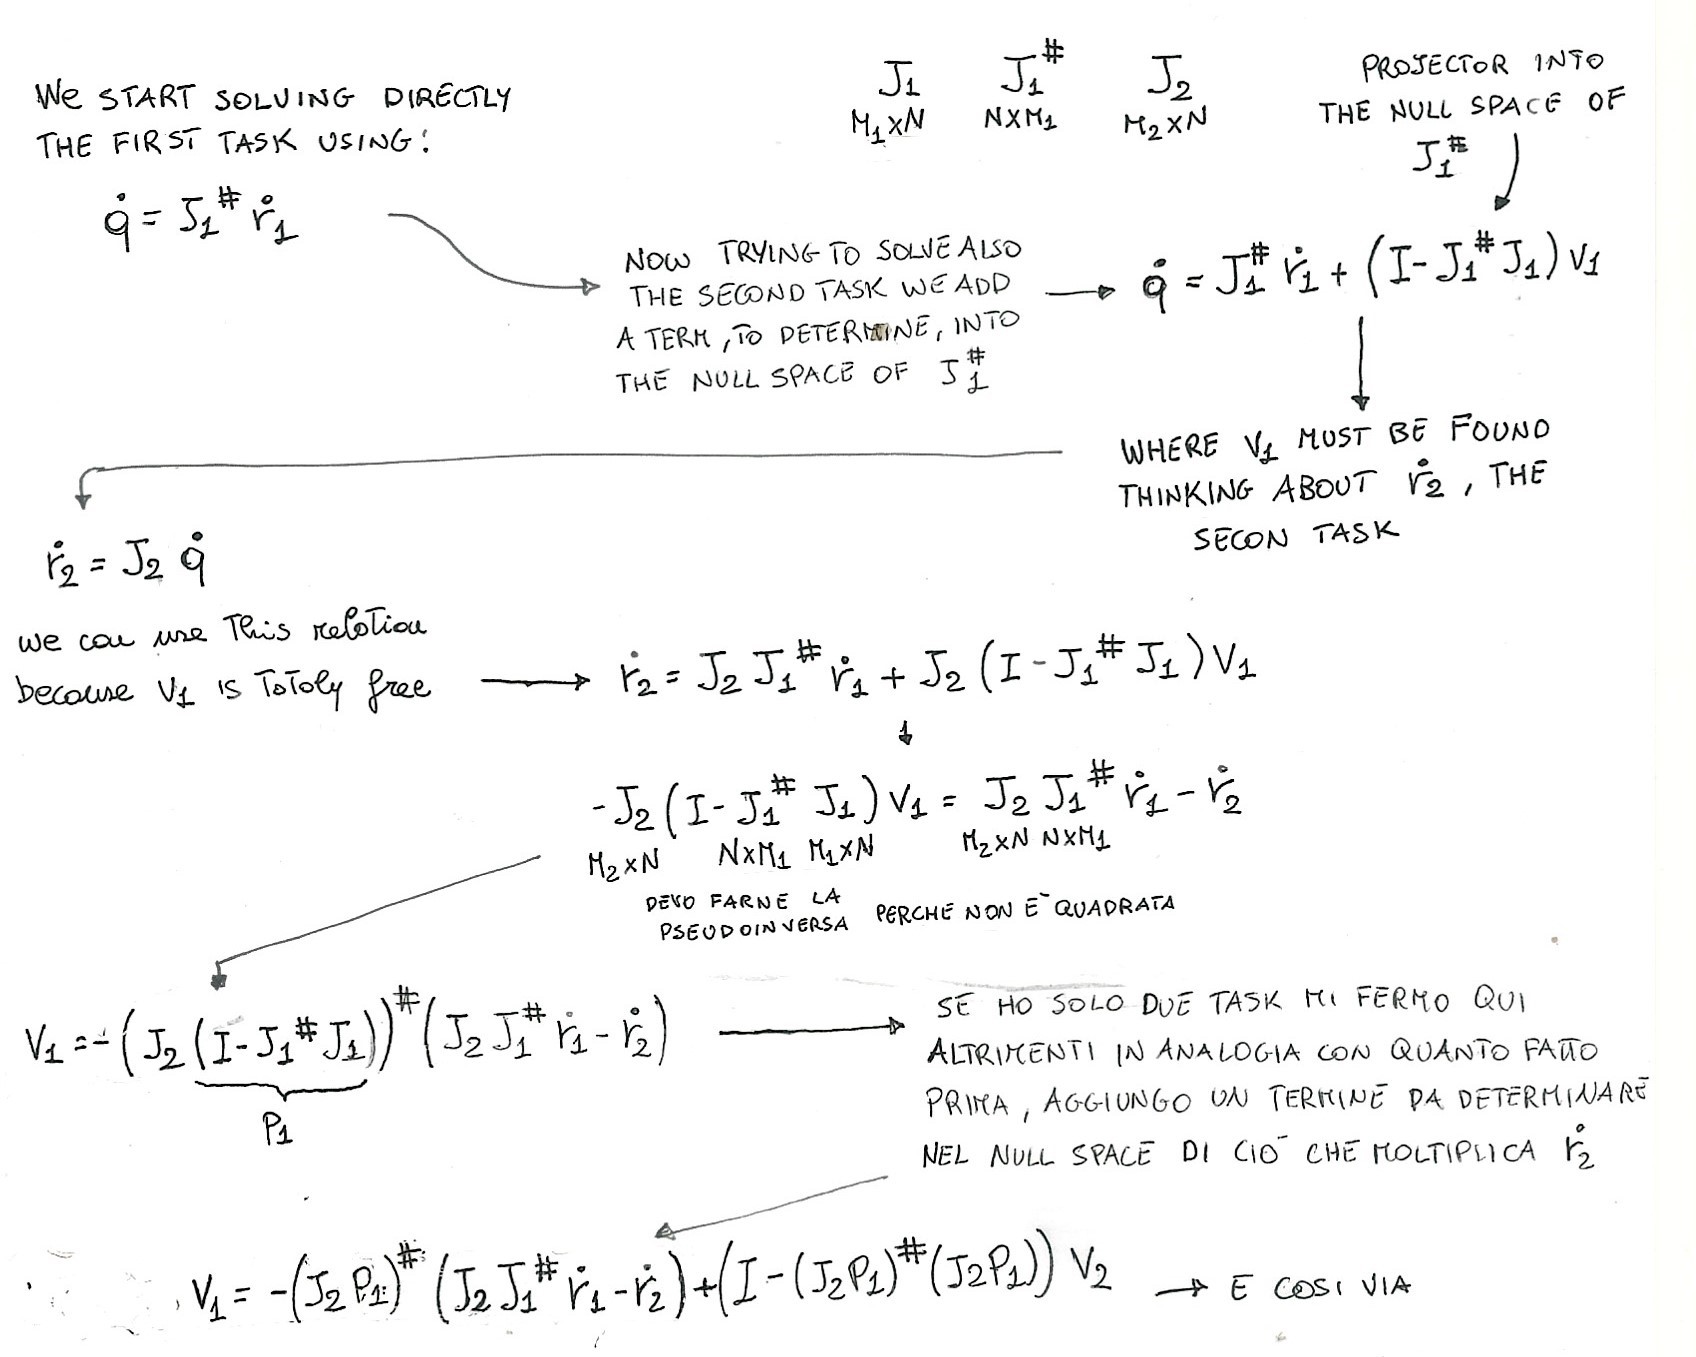 We START SOLVING DIRECTLY
THE FIRST TASK USING:
q̇ = J₁^# ṙ₁
J₁ J₁^# J₂
M₁XN NXM₁ M₂XN
PROJECTOR INTO
THE NULL SPACE OF
J₁^#
NOW TRYING TO SOLVE ALSO
THE SECOND TASK WE ADD
A TERM, TO DETERMINE, INTO
THE NULL SPACE OF J₁^#
q̇ = J₁^# ṙ₁ + (I - J₁^# J₁) V₁
WHERE V₁ MUST BE FOUND
THINKING ABOUT ṙ₂, THE
SECON TASK
ṙ₂ = J₂ q̇
we can use This relation
because V₁ is ToToly free
ṙ₂ = J₂ J₁^# ṙ₁ + J₂ (I - J₁^# J₁) V₁
- J₂ (I - J₁^# J₁) V₁ = J₂ J₁^# ṙ₁ - ṙ₂
M₂XN NXM₁ M₁XN M₂XN NXM₁
DEVO FARNE LA
PSEUDOINVERSA PERCHE NON E` QUADRATA
V₁ = - (J₂ (I - J₁^# J₁))^# (J₂ J₁^# ṙ₁ - ṙ₂)
P₁
SE HO SOLO DUE TASK MI FERMO QUI
ALTRIMENTI IN ANALOGIA CON QUANTO FATTO
PRIMA, AGGIUNGO UN TERMINE DA DETERMINARE
NEL NULL SPACE DI CIO` CHE MOLTIPLICA ṙ₂
V₁ = - (J₂ P₁)^# (J₂ J₁^# ṙ₁ - ṙ₂) + (I - (J₂P₁)^# (J₂P₁)) V₂ → E COSI VIA